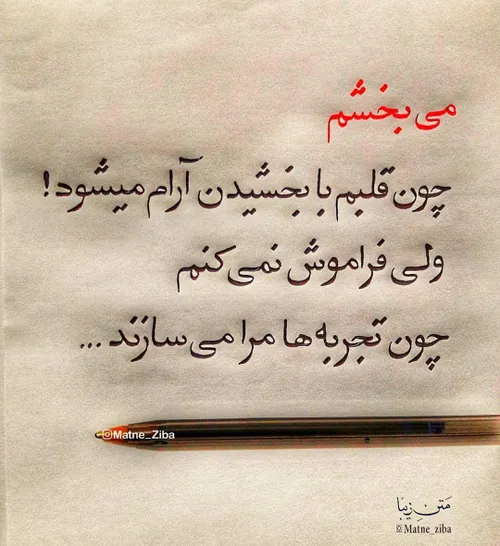 می بخشم
چون قلبم با بخشیدن آرام میشود!
ولی فراموش نمی کنم
چون تجربه ها مرا می سازند ...
@Matne_Ziba
متن زیبا
@Matne_ziba